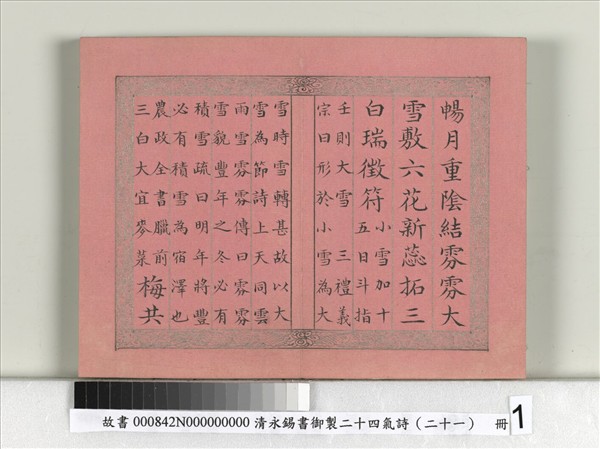 暢月重陰結雰雰大
雪敷六花新蕊拓三
白瑞徵符
小雪加十
五日斗指
壬則大雪 三禮義
宗曰形於小雪為大
雪時雪轉甚故以大
雪為節詩上天同雲
雨雪雰雰傳曰雰雰
雪貌豐年之冬必有
積雪疏曰明年將豐
必有積雪為宿澤也
農政全書臘前
三白大宜麥菜
梅共
故書 000842N000000000 清永錫書御製二十四氣詩（二十一） 冊 1